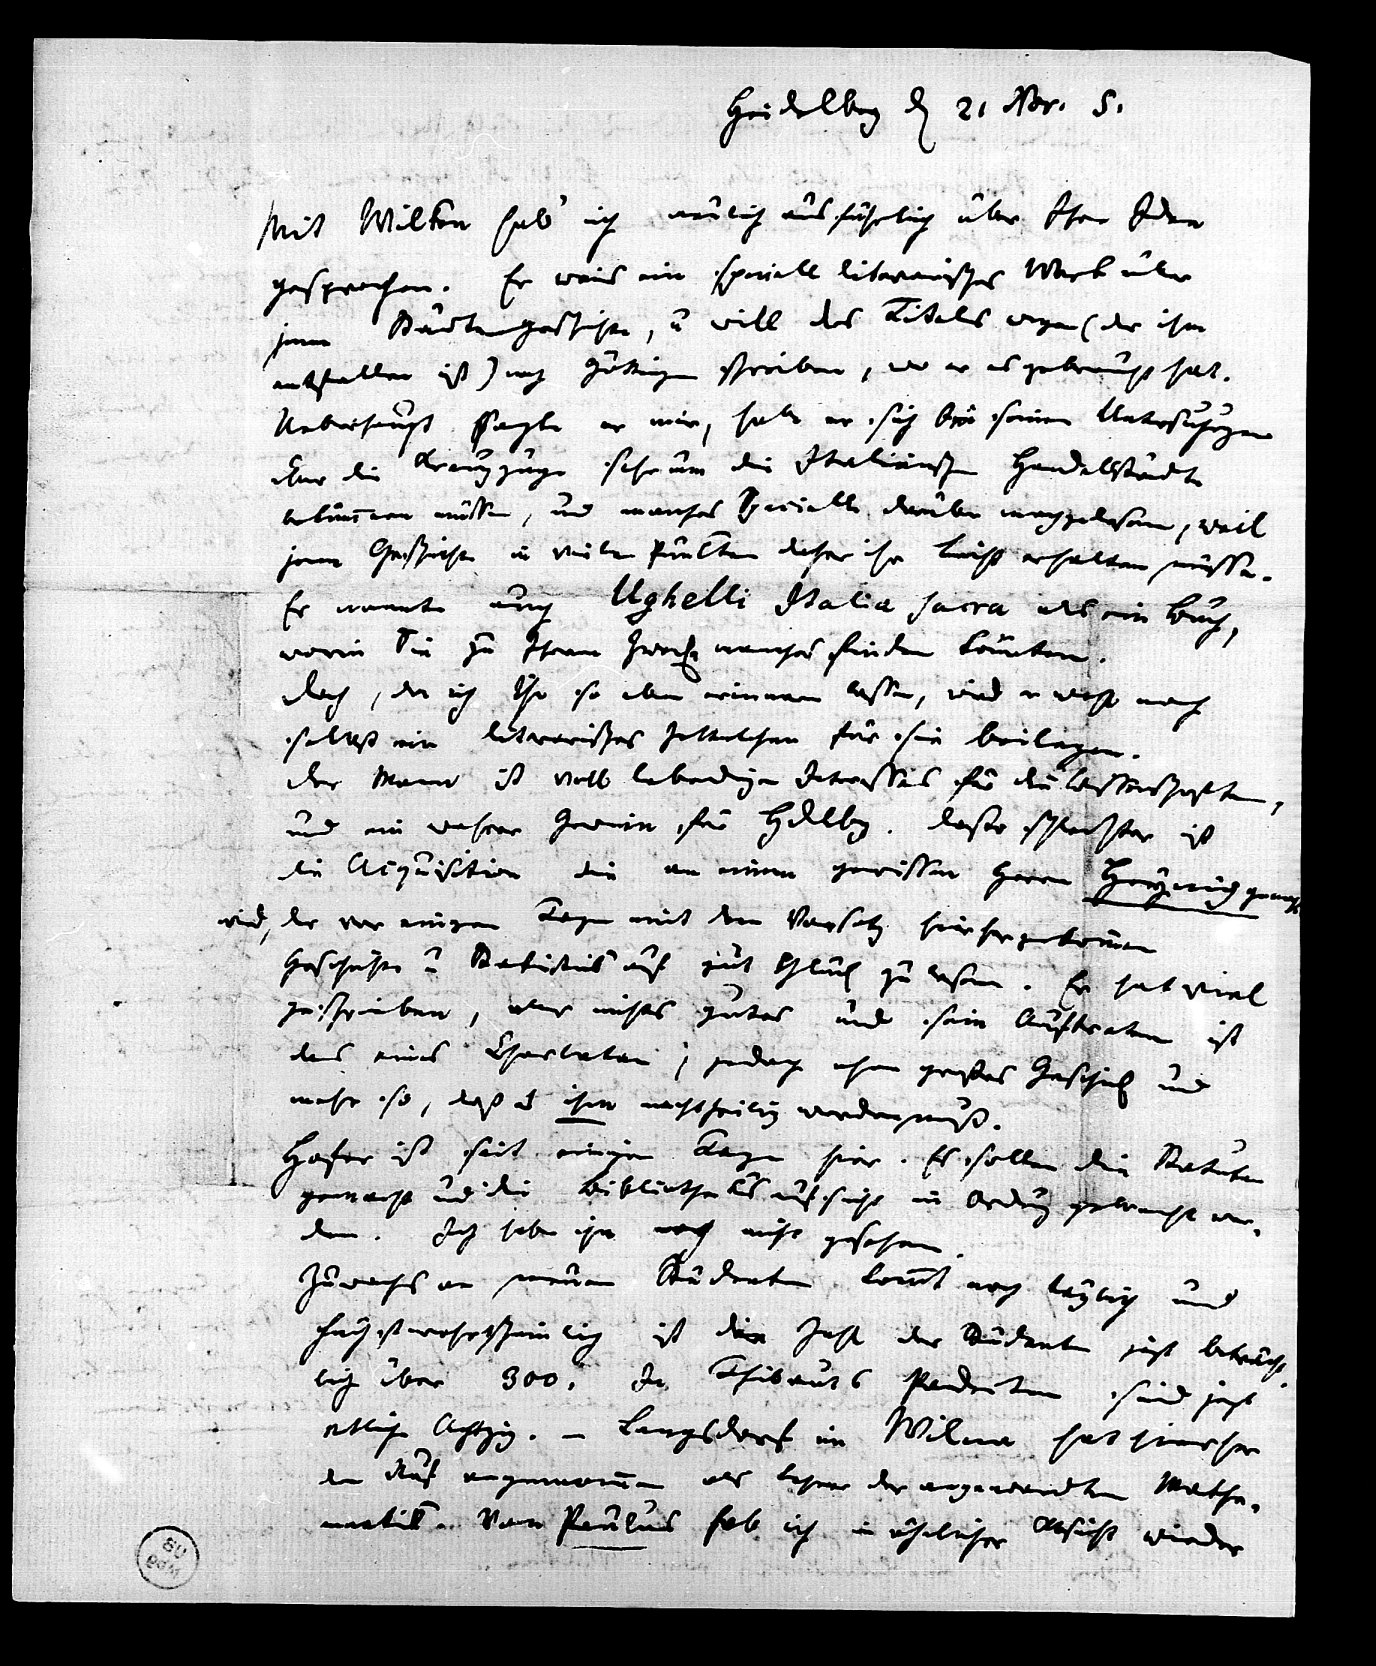 Heidelberg d 21 Nov. 5.
Mit Wilken hab' ich neulich ausführlich über Ihre Idee
gesprochen. Er weis ein speciell literarisches Werk über
jene Städtegeschichte, u will des Titels wegen (der ihm
entfallen ist) nach Göttingen schreiben, wo er es gebraucht hat.
Ueberhaupt sagte er mir, habe er sich bei seinen Untersuchungen
über die Kreuzzüge sehr um die Italiänischen Handelsstädte
bekümmern müssen, und manches Specielle darüber nachgelesen, weil
jene Geschichte in vielen Punkten daher ihr Licht erhalten müsse.
Er nannte auch Ughelli Italia sacra als ein Buch,
worin Sie zu Ihrem Zwecke manches finden könnten.
Doch, da ich Ihn so eben erinnern lasse, wird er wohl noch
selbst ein literarisches Zettelchen für Sie beilegen.
Der Mann ist voll lebendigen Interesses für die Wissenschaften,
und ein wahrer Gewinn für Hdlbg. Desto schlechter ist
die Acquisition die an einem gewissen Herrn gemacht
wird, der vor einigen Tagen mit dem Vorsatz hierhergekommen
Geschichte u Statistik auf gut Glück zu lesen. Er hat viel
geschrieben, aber nichts gutes und sein Auftreten ist
das eines Charlatan; jedoch ohne großes Geschick und
mehr so, daß es ihm nachtheilig werden muß.
Hofer ist seit einigen Tagen hier. Es sollen die Statuten
gemacht und die Bibliotheksaufsicht in Ordnung gebracht wer-
den. Ich habe ihn noch nicht gesehen.
Zuwachs an neuen Studenten kommt noch täglich und
höchstwahrscheinlich ist die Zahl der Studenten jezt beträcht-
lich über 300. In Thibauts Pandecten sind jezt
etliche Achtzig. – Langsdorf in Wilna hat hierher
den Ruf angenommen als Lehrer der angewandten Mathe-
matik. Von Paulus hab ich in ähnlicher Absicht wieder
UB